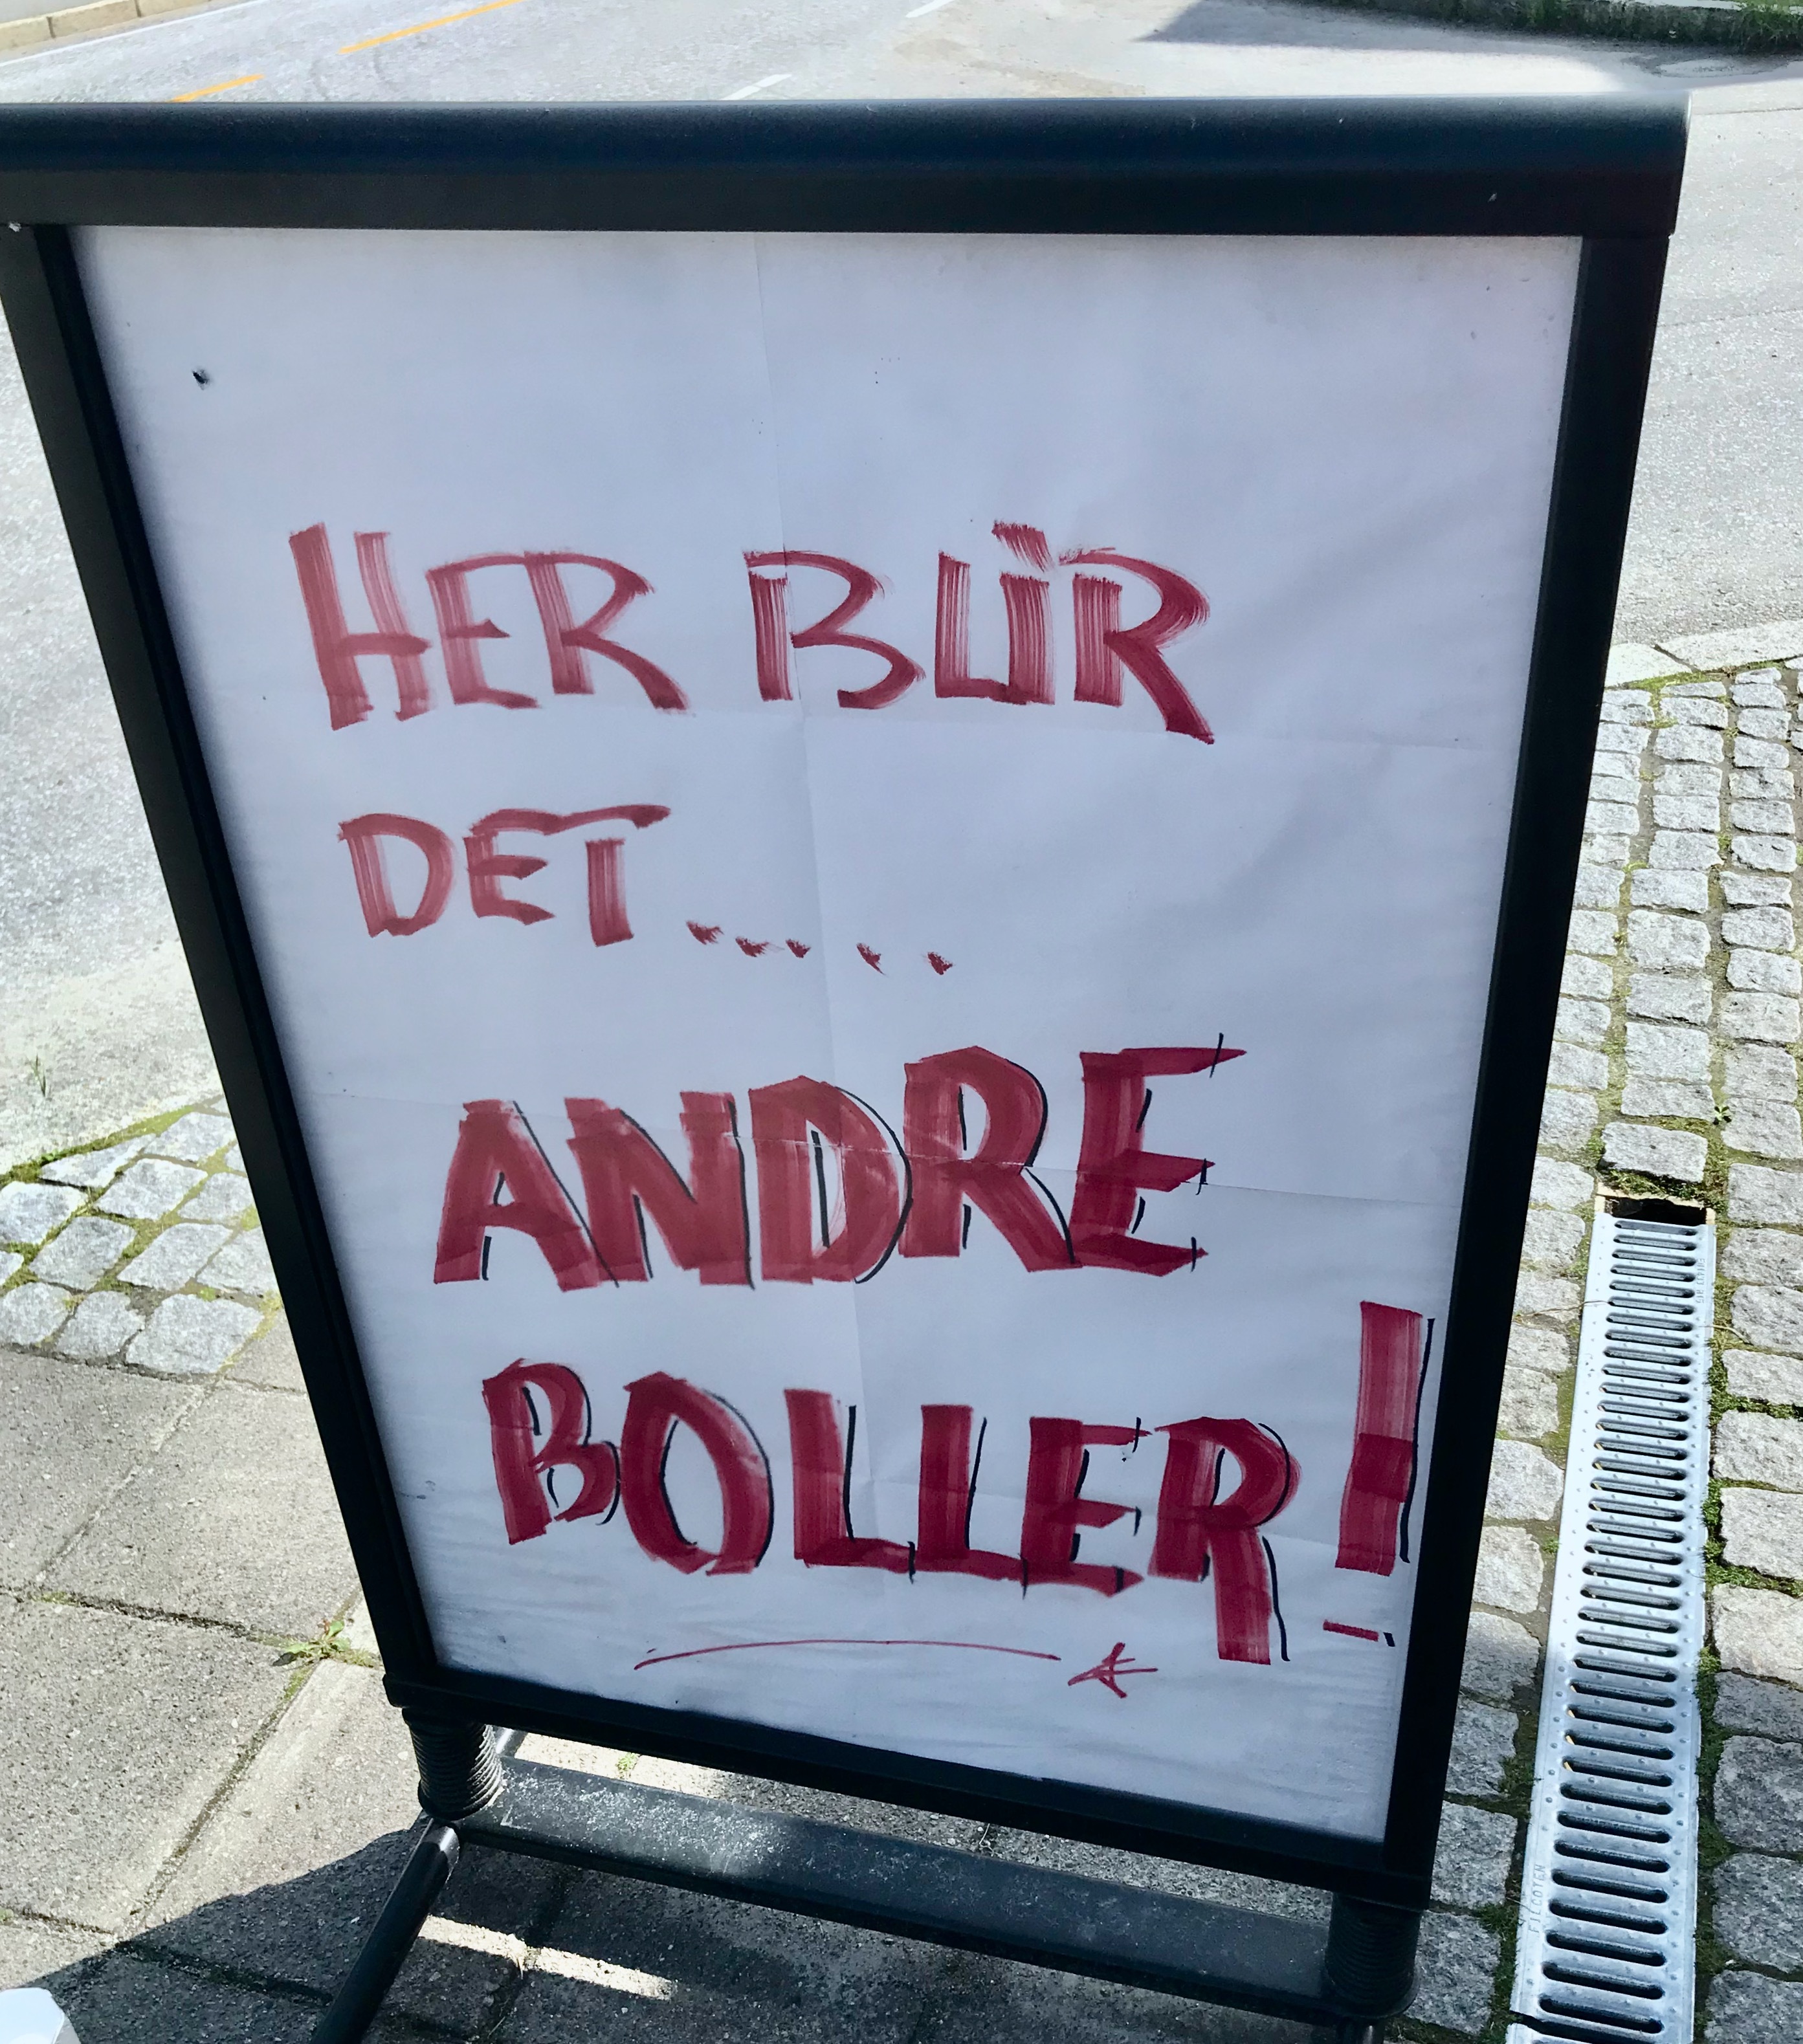 HER BLIR
DET.....
ANDRE
BOLLER!